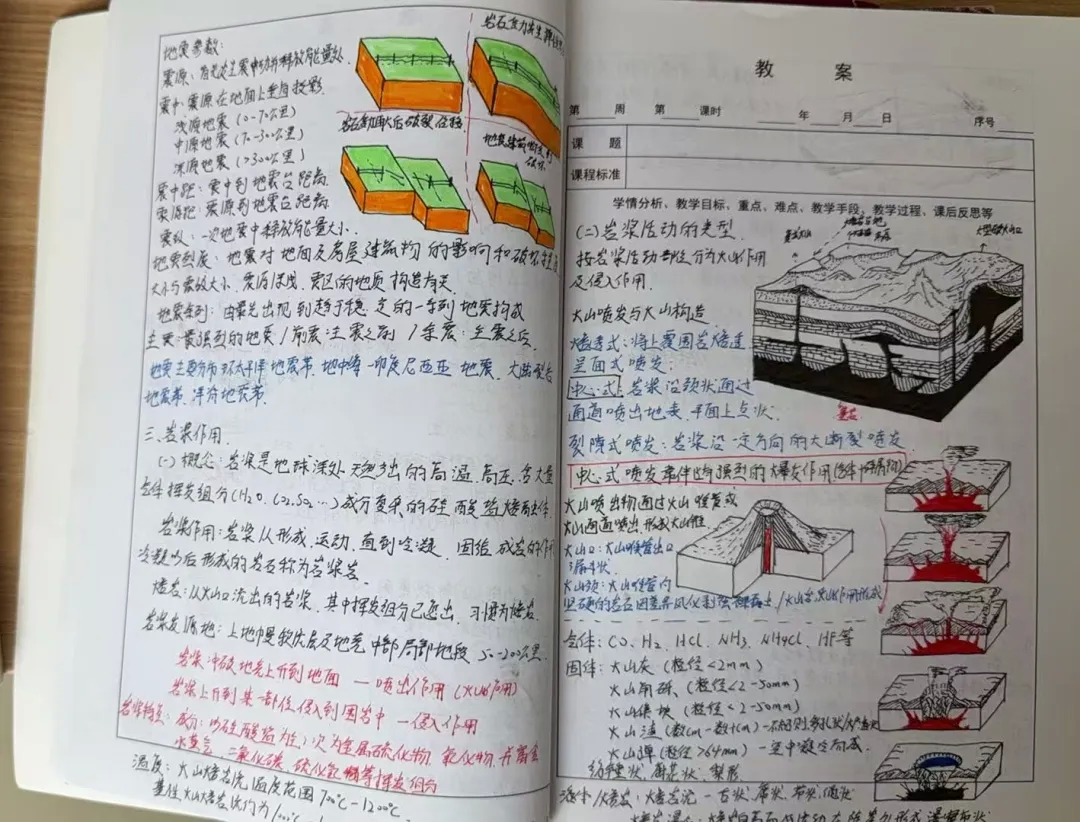 地震参数:
震源:首先发生震动并释放能量处.
震中:震源在地面上垂直投影
浅源地震(0-70公里)
中源地震(70-300公里)
深源地震(>300公里)
震中距:震中到地震台距离.
震源距:震源到地震台距离
震级:一次地震中释放能量大小.
地震烈度:地震对地面及房屋建筑物的影响和破坏程度
大小与震级大小、震源深浅、震区的地质构造有关.
地震系列:由最先出现到趋于稳定的一系列地震构成
主震:最强烈的地震/前震:主震之前/余震:主震之后.
地震主要分布环太平洋地震带、地中海-印度尼西亚地震、大陆裂谷
地震带、洋脊地震带.
三、岩浆作用.
(一)概念:岩浆是地球深处天然产出的高温、高压、含大量
气体挥发组分(H₂O、CO₂、SO₂…)成分复杂的硅酸盐熔融体.
岩浆作用:岩浆从形成、运动、直到冷凝、固结成岩的作用
冷凝以后形成的岩石称为岩浆岩.
熔岩:从火山口流出的岩浆,其中挥发组分已逸出,习惯为熔岩.
岩浆发源地:上地幔软流层及地壳中部局部地段 50-200公里.
岩浆冲破地壳上升到地面 — 喷出作用(火山作用)
岩浆上升到某一部位侵入到围岩中 — 侵入作用
成分:以硅酸盐为主,次为金属硫化物、氧化物,并富含
水蒸气、二氧化碳、硫化氢等挥发组分
温度:火山熔岩流温度范围700℃-1200℃
岩石受力发生弹性
岩石剪切力加大后破裂位移
教 案
第 周 第 课时 年 月 日 序号
课 题
课程标准
学情分析、教学目标、重点、难点、教学手段、教学过程、课后反思等
(二)岩浆活动的类型.
按岩浆活动部位分为火山作用
及侵入作用.
火山喷发与火山构造
熔透式:将上覆围岩熔透
呈面式喷发.
中心式:岩浆沿颈状通过
通道喷出地表,平面上点状.
裂隙式喷发:岩浆沿一定方向的大断裂喷发
中心式喷发常伴随强烈的爆发作用
火山喷出物通过火山喉管或
火山通道喷出,形成火山锥
火山口:火山喉管出口
火山颈:火山喉管内
气体:CO、H₂、HCl、NH₃、NH₄Cl、HF等
固体:火山灰(粒径<2mm)
火山角砾(粒径<2-50mm)
火山集块(粒径<2-50mm)
火山渣(数cm-数十cm)
火山弹(粒径>64mm)-空中凝冷而成.
纺锤状、麻花状、梨形.